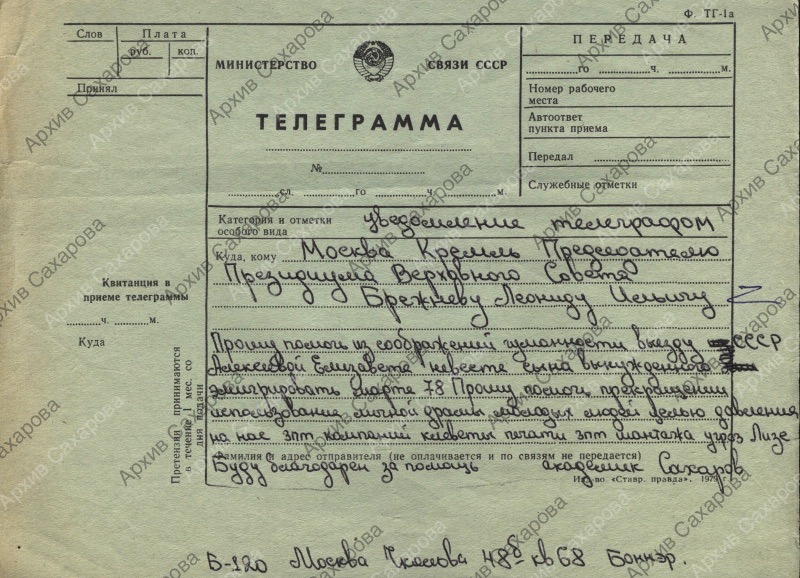 Ф. ТГ-1а
Слов Плата
руб. коп.
Принял
МИНИСТЕРСТВО СВЯЗИ СССР
ТЕЛЕГРАММА
№
сл. го ч. м.
ПЕРЕДАЧА
го ч. м.
Номер рабочего
места
Автоответ
пункта приема
Передал
Служебные отметки
Категория и отметки
особого вида
уведомление телеграфом
Куда, кому Москва Кремль Председателю
Президиума Верховного Совета
Брежневу Леониду Ильичу
Квитанция в
приеме телеграммы
ч. м.
Куда
Претензии принимаются
в течение 1 мес. со
дня подачи
Прошу помочь из соображений гуманности выезду СССР
Алексеевой Елизавета невесте сына вынужденного
эмигрировать марте 78 Прошу помочь прекращении
использования личной драмы молодых людей целью давления
на нас зпт компании клеветы печати зпт шантажа угроз Лизе
Фамилия и адрес отправителя (не оплачивается и по связям не передается)
Буду благодарен за помощь академик Сахаров
Изд-во «Ставр. правда». 1979 г.
Б-120 Москва Чкалова 48б кв 68 Боннэр.
Архив Сахарова